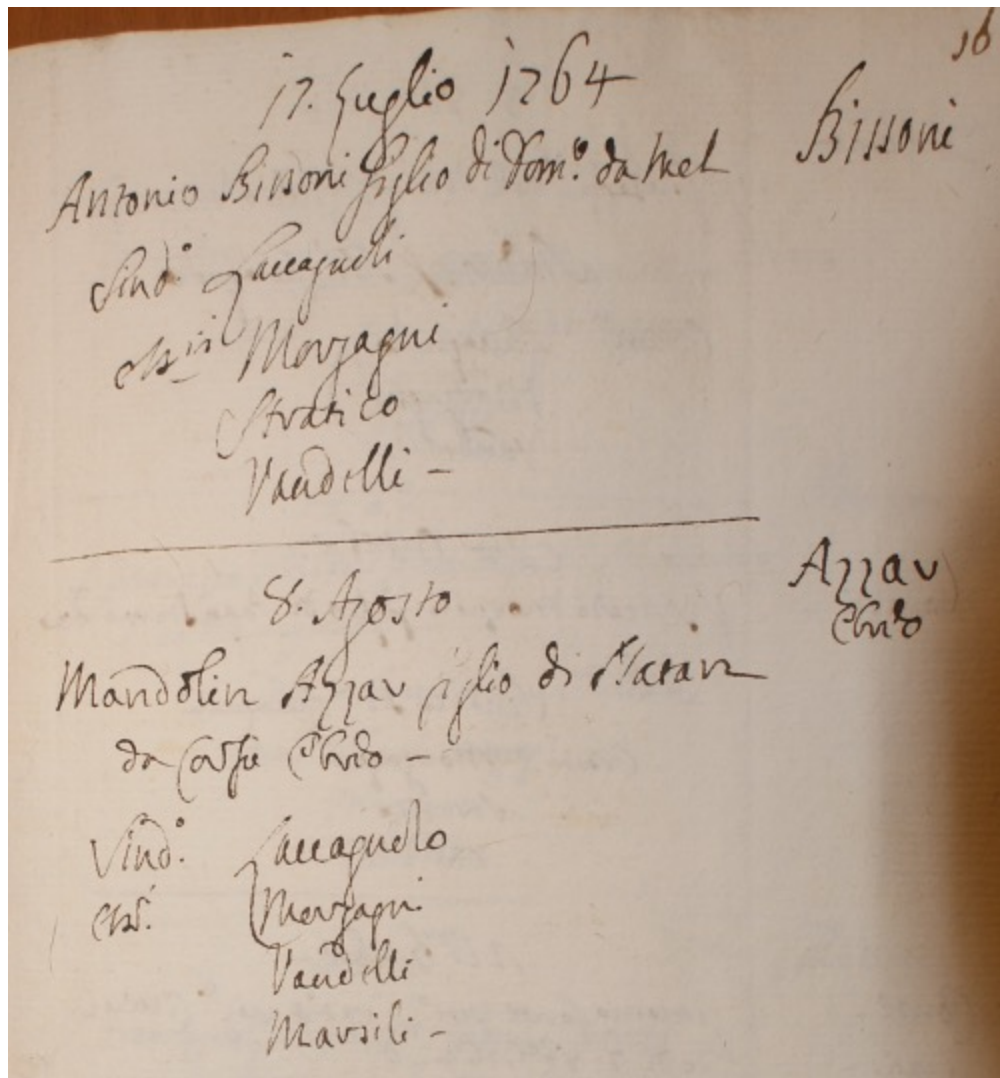 16
17. Luglio 1764
Bissoni
Antonio Bissoni figlio di Dom.º da Mel
Sind.º Zaccagnoli
Morgagni
Stratico
Vandelli -
8. Agosto
Azzav
Ebrẽo
Mandolin Azzav figlio di Natan
da Corfu Ebreo -
Sind.º Zaccagnolo
Morgagni
Vandelli
Marsili -